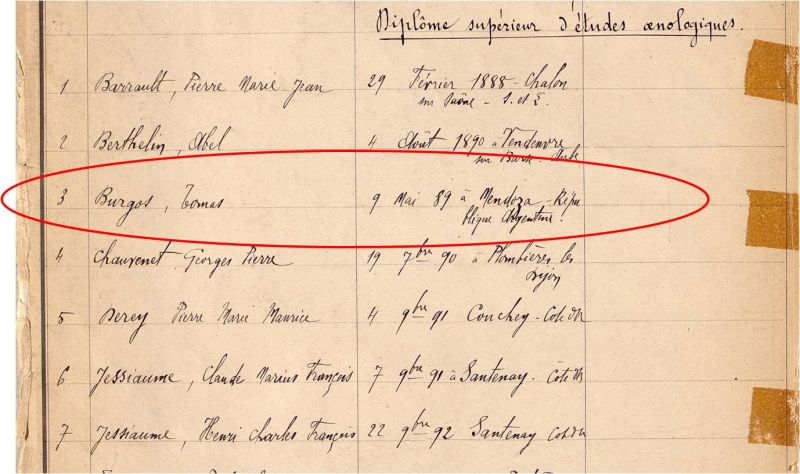 Diplôme supérieur d'études œnologiques.
1 Barrault, Pierre Marie Jean 29 Février 1888 - Chalon
sur Saône - S. et L.
2 Berthelin, Abel 4 Août 1890 à Vendeuvre
sur Barse - Aube
3 Burgos, Tomas 9 Mai 89 à Mendoza - Répu
blique Argentine.
4 Chauvenet, Georges Pierre 19 7bre 90 à Plombières les
Dijon
5 Derey Pierre Marie Maurice 4 9bre 91 Couchey - Cote d'Or
6 Jessiaume, Claude Marius François 7 9bre 91 à Santenay - Côte d'Or
7 Jessiaume, Henri Charles François 22 9bre 92 Santenay Cote d'Or